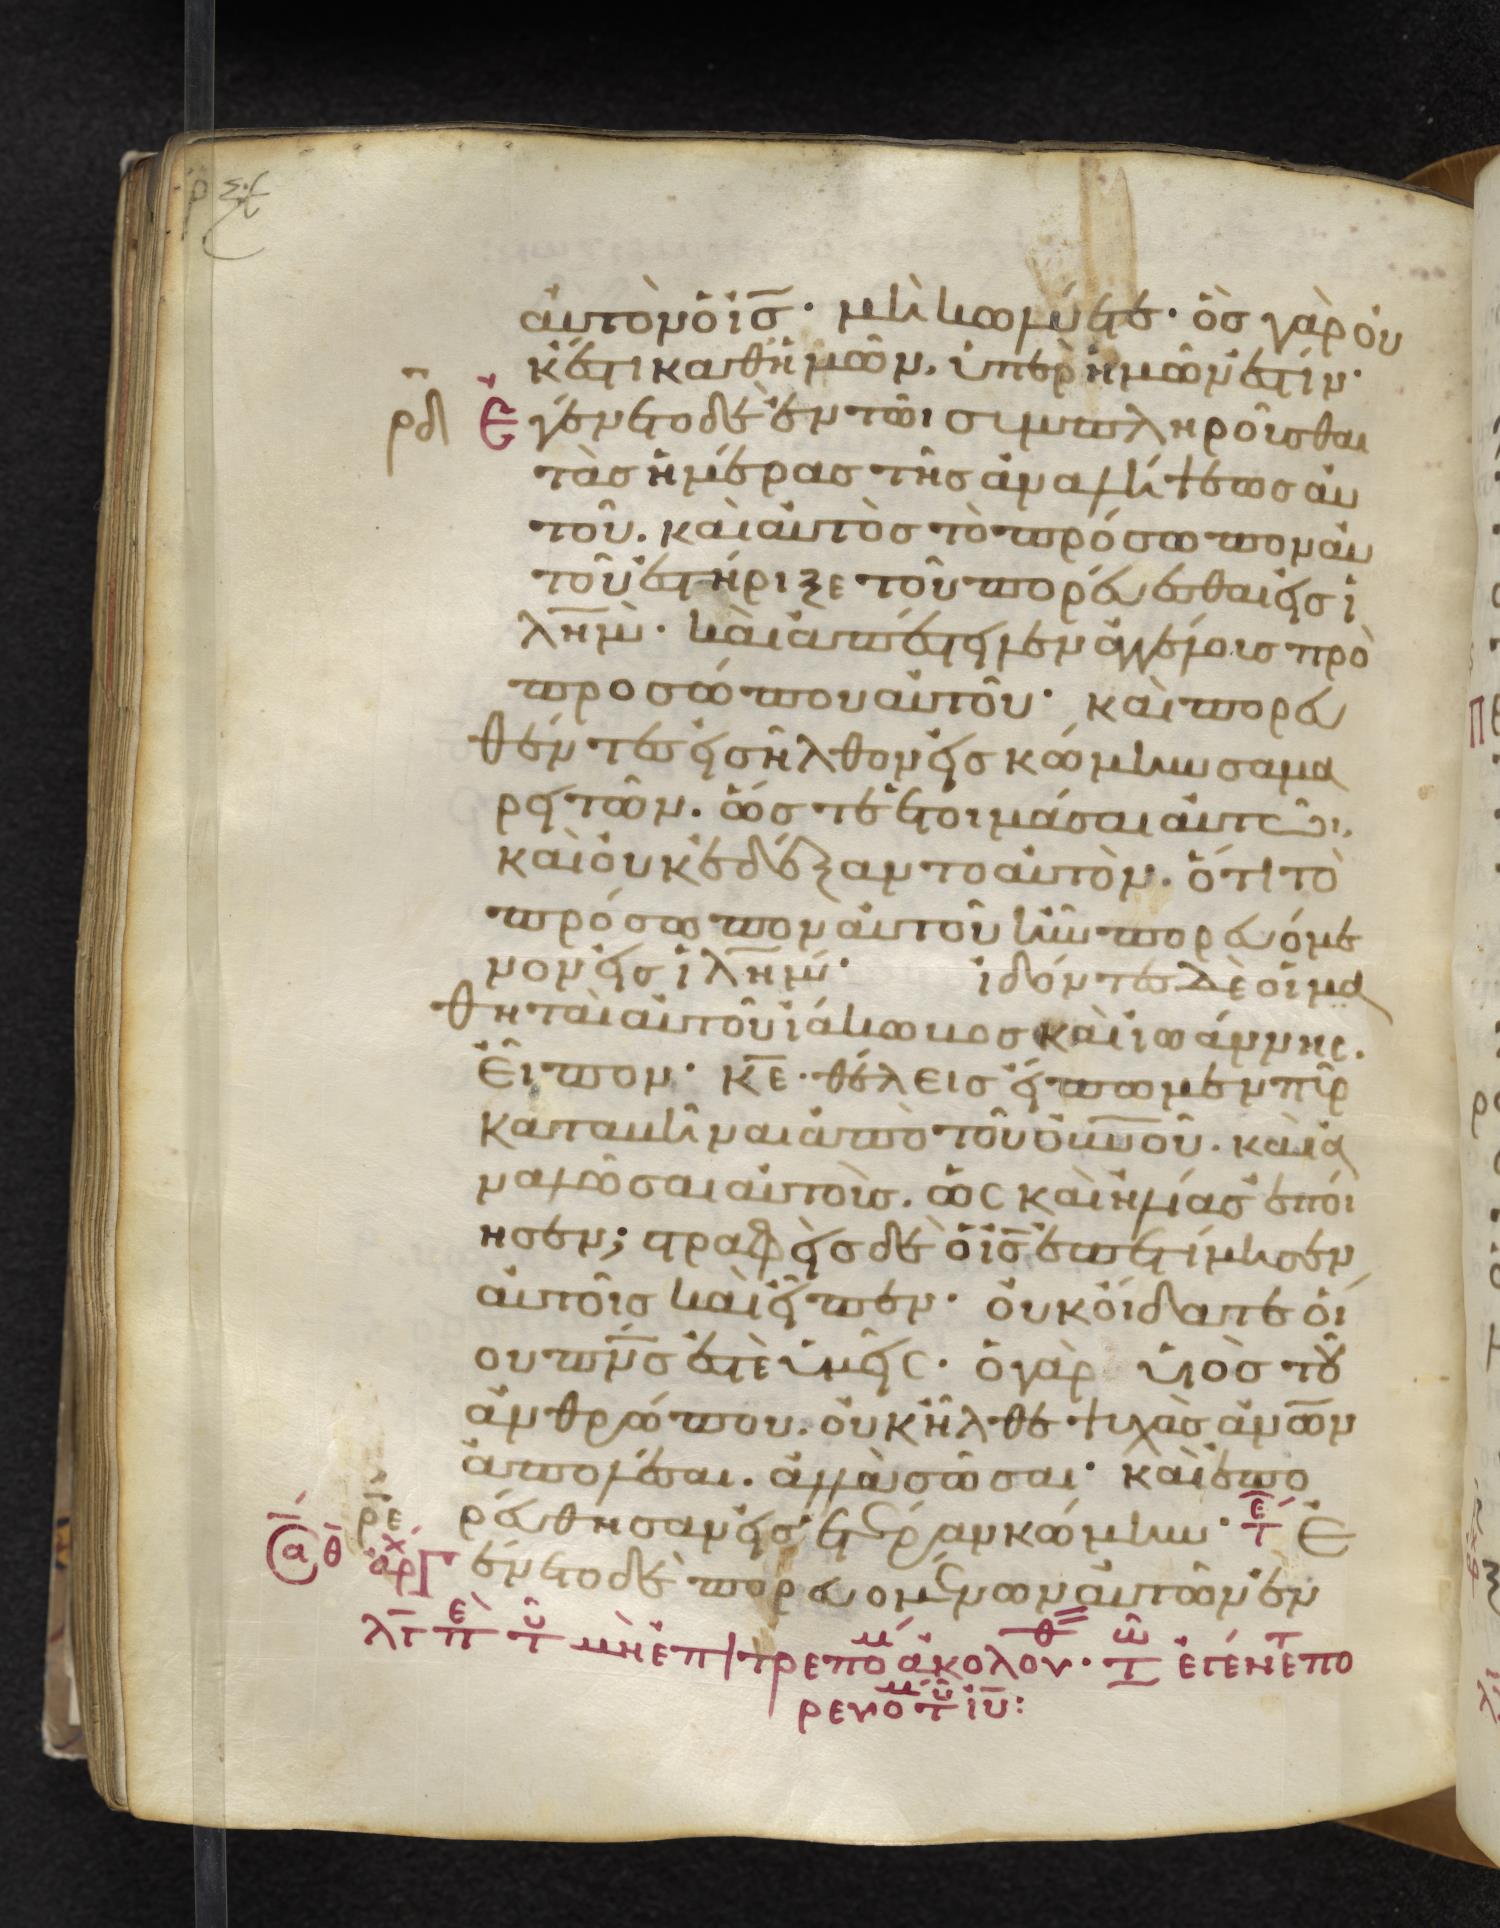 αὐτὸν ὁ ἰ̅σ̅· μὴ κωλύετε· ὃσ γὰρ οὐ
κ ἔστι καθ ἡμῶν. ὑπὲρ ἡμῶν ἐστίν·
ρ̅δ̅ Ἐγένετο δὲ ἐν τῶι συμπληροῦσθαι
τὰσ ἡμέρασ τῆσ ἀναλήψεωσ αὐ
τοῦ. καὶ αὐτὸσ τὸ πρόσωπον αὐ
τοῦ ἐστήριξε τοῦ πορεύεσθαι εἰσ ἰ
λ̅η̅μ̅· καὶ ἀπέστειλεν ἀγγέλουσ πρὸ
προσώπου αὐτοῦ· καὶ πορευ
θέντεσ εἰσῆλθον εἰσ κώμην σαμα
ρειτῶν. ὥστε ἑτοιμάσαι αὐτῶι.
καὶ οὐκ ἐδέξαντο αὐτὸν. ὅτι τὸ
πρόσωπον αὐτοῦ ἦν πορευόμε
νον εἰσ ἰλ̅η̅μ̅· ἰδόντεσ δὲ οἱ μα
θηταὶ αὐτοῦ ἰάκωβοσ καὶ ἰωάννησ.
εἶπον· κ̅ε̅· θέλεισ εἴπωμεν πῦρ
καταβῆναι ἀπὸ τοῦ οὐ̅ν̅οῦ. καὶ ἀ
ναλῶσαι αὐτοὺσ. ὡσ καὶ ἠλίασ ἐποί
ησεν; στραφεὶσ δὲ ὁ ἰ̅σ̅ ἐπετίμησεν
αὐτοῖσ καὶ εἶπεν· οὐκ οἴδατε οἵ
ου π̅ν̅σ̅ ἐστὲ ὑμεῖσ· ὁ γὰρ υἱὸσ τοῦ
ἀνθρώπου. οὐκ ἦλθε ψυχὰσ ἀν̅ω̅ν
ἀπολέσαι. ἀλλὰ σῶσαι· καὶ ἐπο
ρ̅ε̅ ρεύθησαν εἰσ ἑτέραν κώμην· τ̅ε̅ Ἐ
α̅ θ̅ ἀρχ γένετο δὲ πορευομένων αὐτῶν ἐν